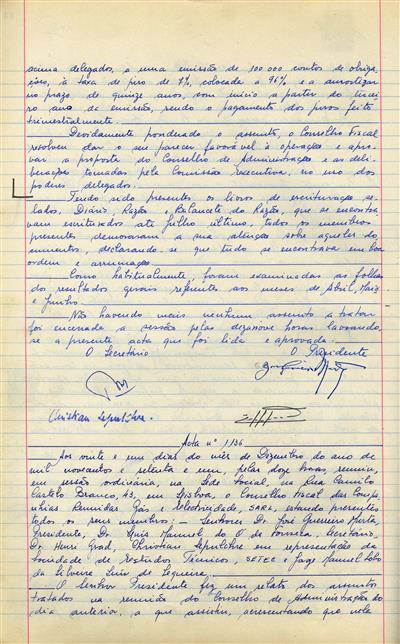 acima delegados, a uma emissão de 100 000 contos de obriga-
ções, à taxa de juro de 7%, colocada a 96% e a amortizar
no prazo de quinze anos, com início a partir do tercei-
ro ano da emissão, sendo o pagamento dos juros feito
trimestralmente.
Devidamente ponderado o assunto, o Conselho Fiscal
resolveu dar o seu parecer favorável à operação e apro-
var a proposta do Conselho de Administração e as deli-
berações tomadas pela Comissão Executiva, no uso dos
poderes delegados.
Tendo sido presentes os livros de escrituração se-
lados, Diário, Razão e Balancete do Razão, que se encontra-
vam escriturados até Julho último, todos os membros
presentes demoraram a sua atenção sobre aqueles do-
cumentos, declarando-se que tudo se encontrava em boa
ordem e arrumação.
Como habitualmente, foram examinadas as folhas
dos resultados gerais referente aos meses de Abril, Maio
e Junho.
Não havendo mais nenhum assunto a tratar
foi encerrada a sessão pelas dezanove horas lavrando-
se a presente acta que foi lida e aprovada.
O Secretário O Presidente
Christian Lepulchre.
Acta nº 1/136
Aos vinte e um dias do mês de Dezembro do ano de
mil novecentos e setenta e um, pelas doze horas, reuniu,
em sessão ordinária, na Sede Social, na Rua Camilo
Castelo Branco, 43, em Lisboa, o Conselho Fiscal das Compa-
nhias Reunidas Gás e Electricidade, SARL, estando presentes
todos os seus membros – Senhores Dr. José Guerreiro Murta,
Presidente, Dr. Luís Manuel do Ó da Fonseca, Secretário,
Dr. Henri Grad, Christian Lepulchre em representação da
Sociedade de Estudos Técnicos, SETEC e Jorge Manuel Lobo
da Silveira Luís de Sequeira.
O Senhor Presidente fez um relato dos assuntos
tratados na reunião do Conselho de Administração do
dia anterior, a que assistiu, acrescentando que nela